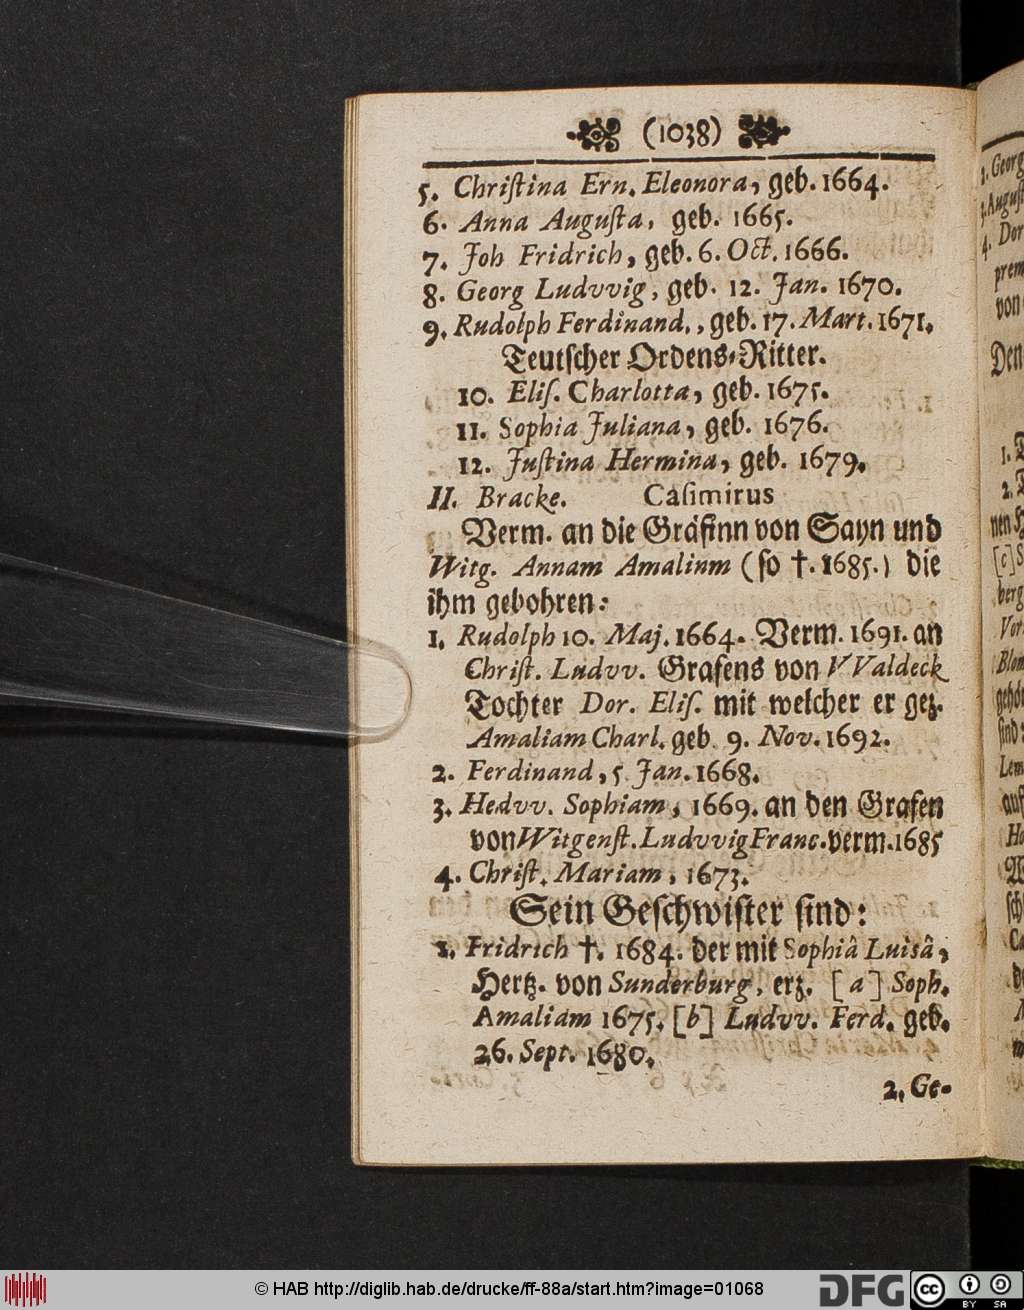 (1038)
5. Chriſtina Ern. Eleonora, geb. 1664.
6. Anna Auguſta, geb. 1665.
7. Joh Fridrich, geb. 6. Oct. 1666.
8. Georg Ludvvig, geb. 12. Jan. 1670.
9. Rudolph Ferdinand., geb. 17. Mart. 1671.
Teutſcher Ordens-Ritter.
10. Eliſ. Charlotta, geb. 1675.
11. Sophia Juliana, geb. 1676.
12. Juſtina Hermina, geb. 1679.
II. Bracke. Caſimirus
Verm. an die Gräfinn von Sayn und
Witg. Annam Amalinm (ſo †. 1685.) die
ihm gebohren:
1. Rudolph 10. Maj. 1664. Verm. 1691. an
Chriſt. Ludvv. Grafens von VValdeck
Tochter Dor. Eliſ. mit welcher er gez.
Amaliam Charl. geb. 9. Nov. 1692.
2. Ferdinand, 5 Jan. 1668.
3. Hedvv. Sophiam, 1669. an den Grafen
von Witgenſt. Ludvvig Franc. verm. 1685
4. Chriſt. Mariam, 1673.
Sein Geſchwiſter ſind:
1. Fridrich †. 1684. der mit Sophiâ Luisâ,
Hertz. von Sunderburg, erz. [a] Soph.
Amaliam 1675. [b] Ludvv. Ferd. geb.
26. Sept. 1680.
2. Ge-
1. Georg
3. Auguſt
4. Dor
prem
von
Den
1.
2.
nen
[c]
berg
Vor
Blom
ſind:
Lem
auf
© HAB http://diglib.hab.de/drucke/ff-88a/start.htm?image=01068
DFG
cc BY SA